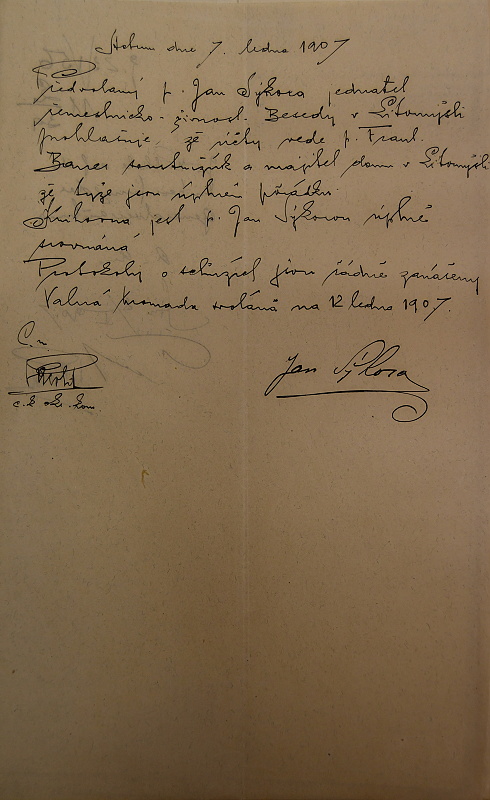 dne 7. ledna 1907
Předvolaný p. Jan Sýkora jednatel
řemeslnicko-živnost. Besedy v Litomyšli
prohlašuje, že účty vede p. Frant.
a majitel domu v Litomyšli
že tyže jsou úplně pořádku.
Knihovna jest p. Janem Sýkorou úplně
srovnána
Protokoly o schůzích jsou řádně zanášeny
Valná hromada svolána na 12 ledna 1907.
C. n.
Jan Sýkora
c. k. okr. kom.